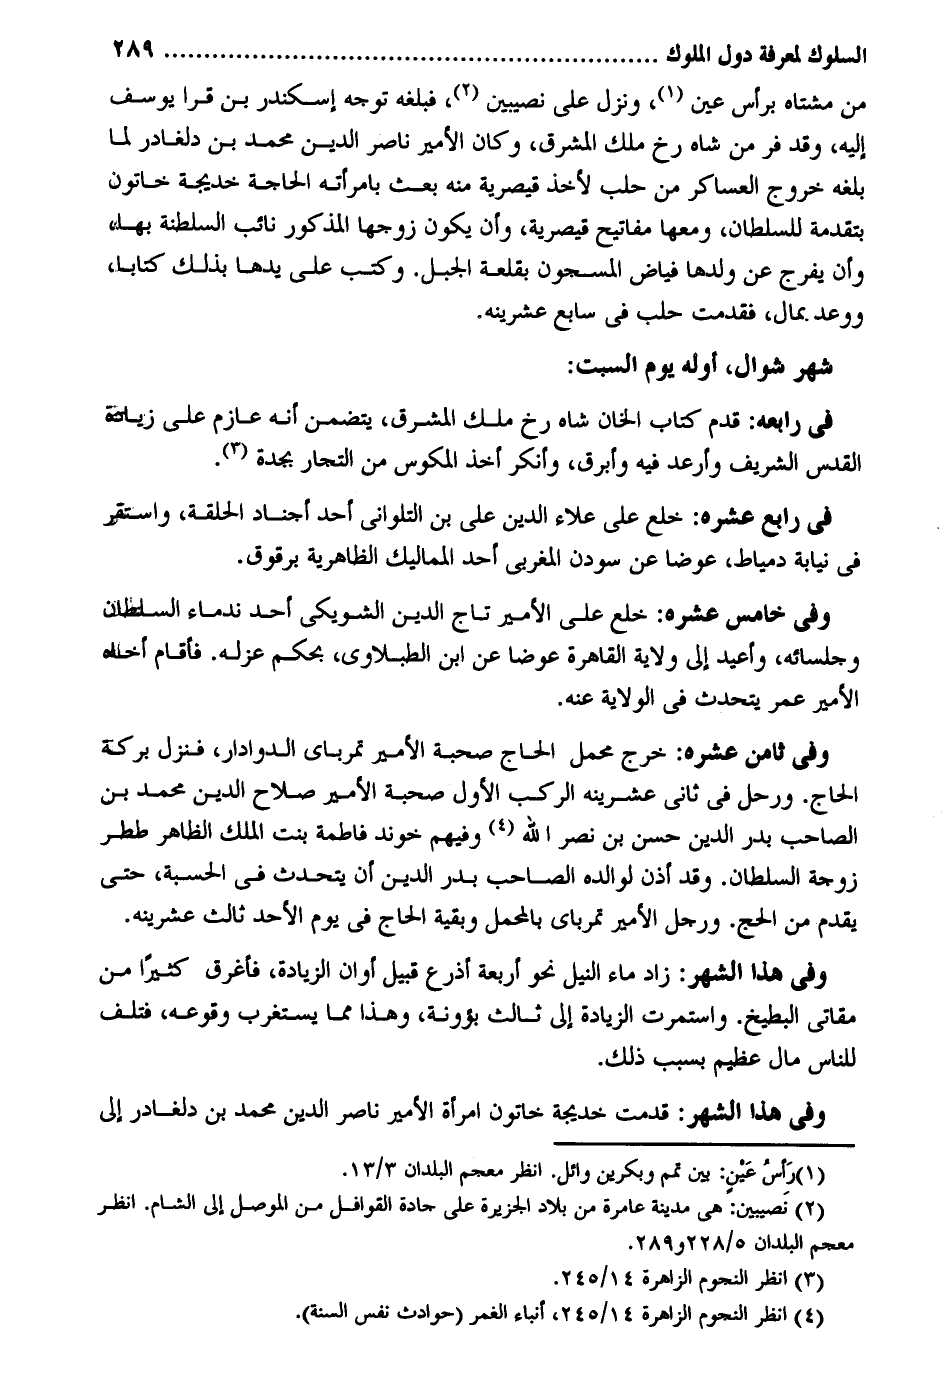 السلوك لمعرفة دول الملوك ............................................................. ٢٨٩
من مشتاه برأس عين (١)، ونزل على نصيبين (٢)، فبلغه توجه إسكندر بن قرا يوسف
إليه، وقد فر من شاه رخ ملك المشرق، وكان الأمير ناصر الدين محمد بن دلغادر لما
بلغه خروج العساكر من حلب لأخذ قيصرية منه بعث بامرأته الحاجة خديجة خاتون
بتقدمة للسلطان، ومعها مفاتيح قيصرية، وأن يكون زوجها المذكور نائب السلطنة بها،
وأن يفرج عن ولدها فياض المسجون بقلعة الجبل. وكتب على يدها بذلك كتابا،
ووعد بمال، فقدمت حلب فى سابع عشرينه.
شهر شوال، أوله يوم السبت:
فى رابعه: قدم كتاب الخان شاه رخ ملك المشرق، يتضمن أنه عازم على زيارة
القدس الشريف وأرعد فيه وأبرق، وأنكر أخذ المكوس من التجار بجدة (٣).
فى رابع عشره: خلع على علاء الدين على بن التلوانى أحد أجناد الحلقة، واستقر
فى نيابة دمياط، عوضا عن سودن المغربى أحد المماليك الظاهرية برقوق.
وفى خامس عشره: خلع على الأمير تاج الدين الشويكى أحد ندماء السلطان
وجلسائه، وأعيد إلى ولاية القاهرة عوضا عن ابن الطبلاوى، بحكم عزله. فأقام أخاه
الأمير عمر يتحدث فى الولاية عنه.
وفى ثامن عشره: خرج محمل الحاج صحبة الأمير تمرباى الدوادار، فنزل بركة
الحاج. ورحل فى ثانى عشرينه الركب الأول صحبة الأمير صلاح الدين محمد بن
الصاحب بدر الدين حسن بن نصر الله (٤) وفيهم خوند فاطمة بنت الملك الظاهر ططر
زوجة السلطان. وقد أذن لوالده الصاحب بدر الدين أن يتحدث فى الحسبة، حتى
يقدم من الحج. ورحل الأمير تمرباى بالمحمل وبقية الحاج فى يوم الأحد ثالث عشرينه.
وفى هذا الشهر: زاد ماء النيل نحو أربعة أذرع قبيل أوان الزيادة، فأغرق كثيرًا من
مقاتى البطيخ. واستمرت الزيادة إلى ثالث بؤونة، وهذا مما يستغرب وقوعه، فتلف
للناس مال عظيم بسبب ذلك.
وفى هذا الشهر: قدمت خديجة خاتون امرأة الأمير ناصر الدين محمد بن دلغادر إلى
(١)رَأسُ عَيْنٍ: بين تمم وبكرين وائل. انظر معجم البلدان ١٣/٣.
(٢) نَصيبين: هى مدينة عامرة من بلاد الجزيرة على جادة القوافل من الموصل إلى الشام. انظر
معجم البلدان ٢٢٨/٥و٢٨٩.
(٣) انظر النجوم الزاهرة ٢٤٥/١٤.
(٤) انظر النجوم الزاهرة ٢٤٥/١٤، أنباء الغمر (حوادث نفس السنة).